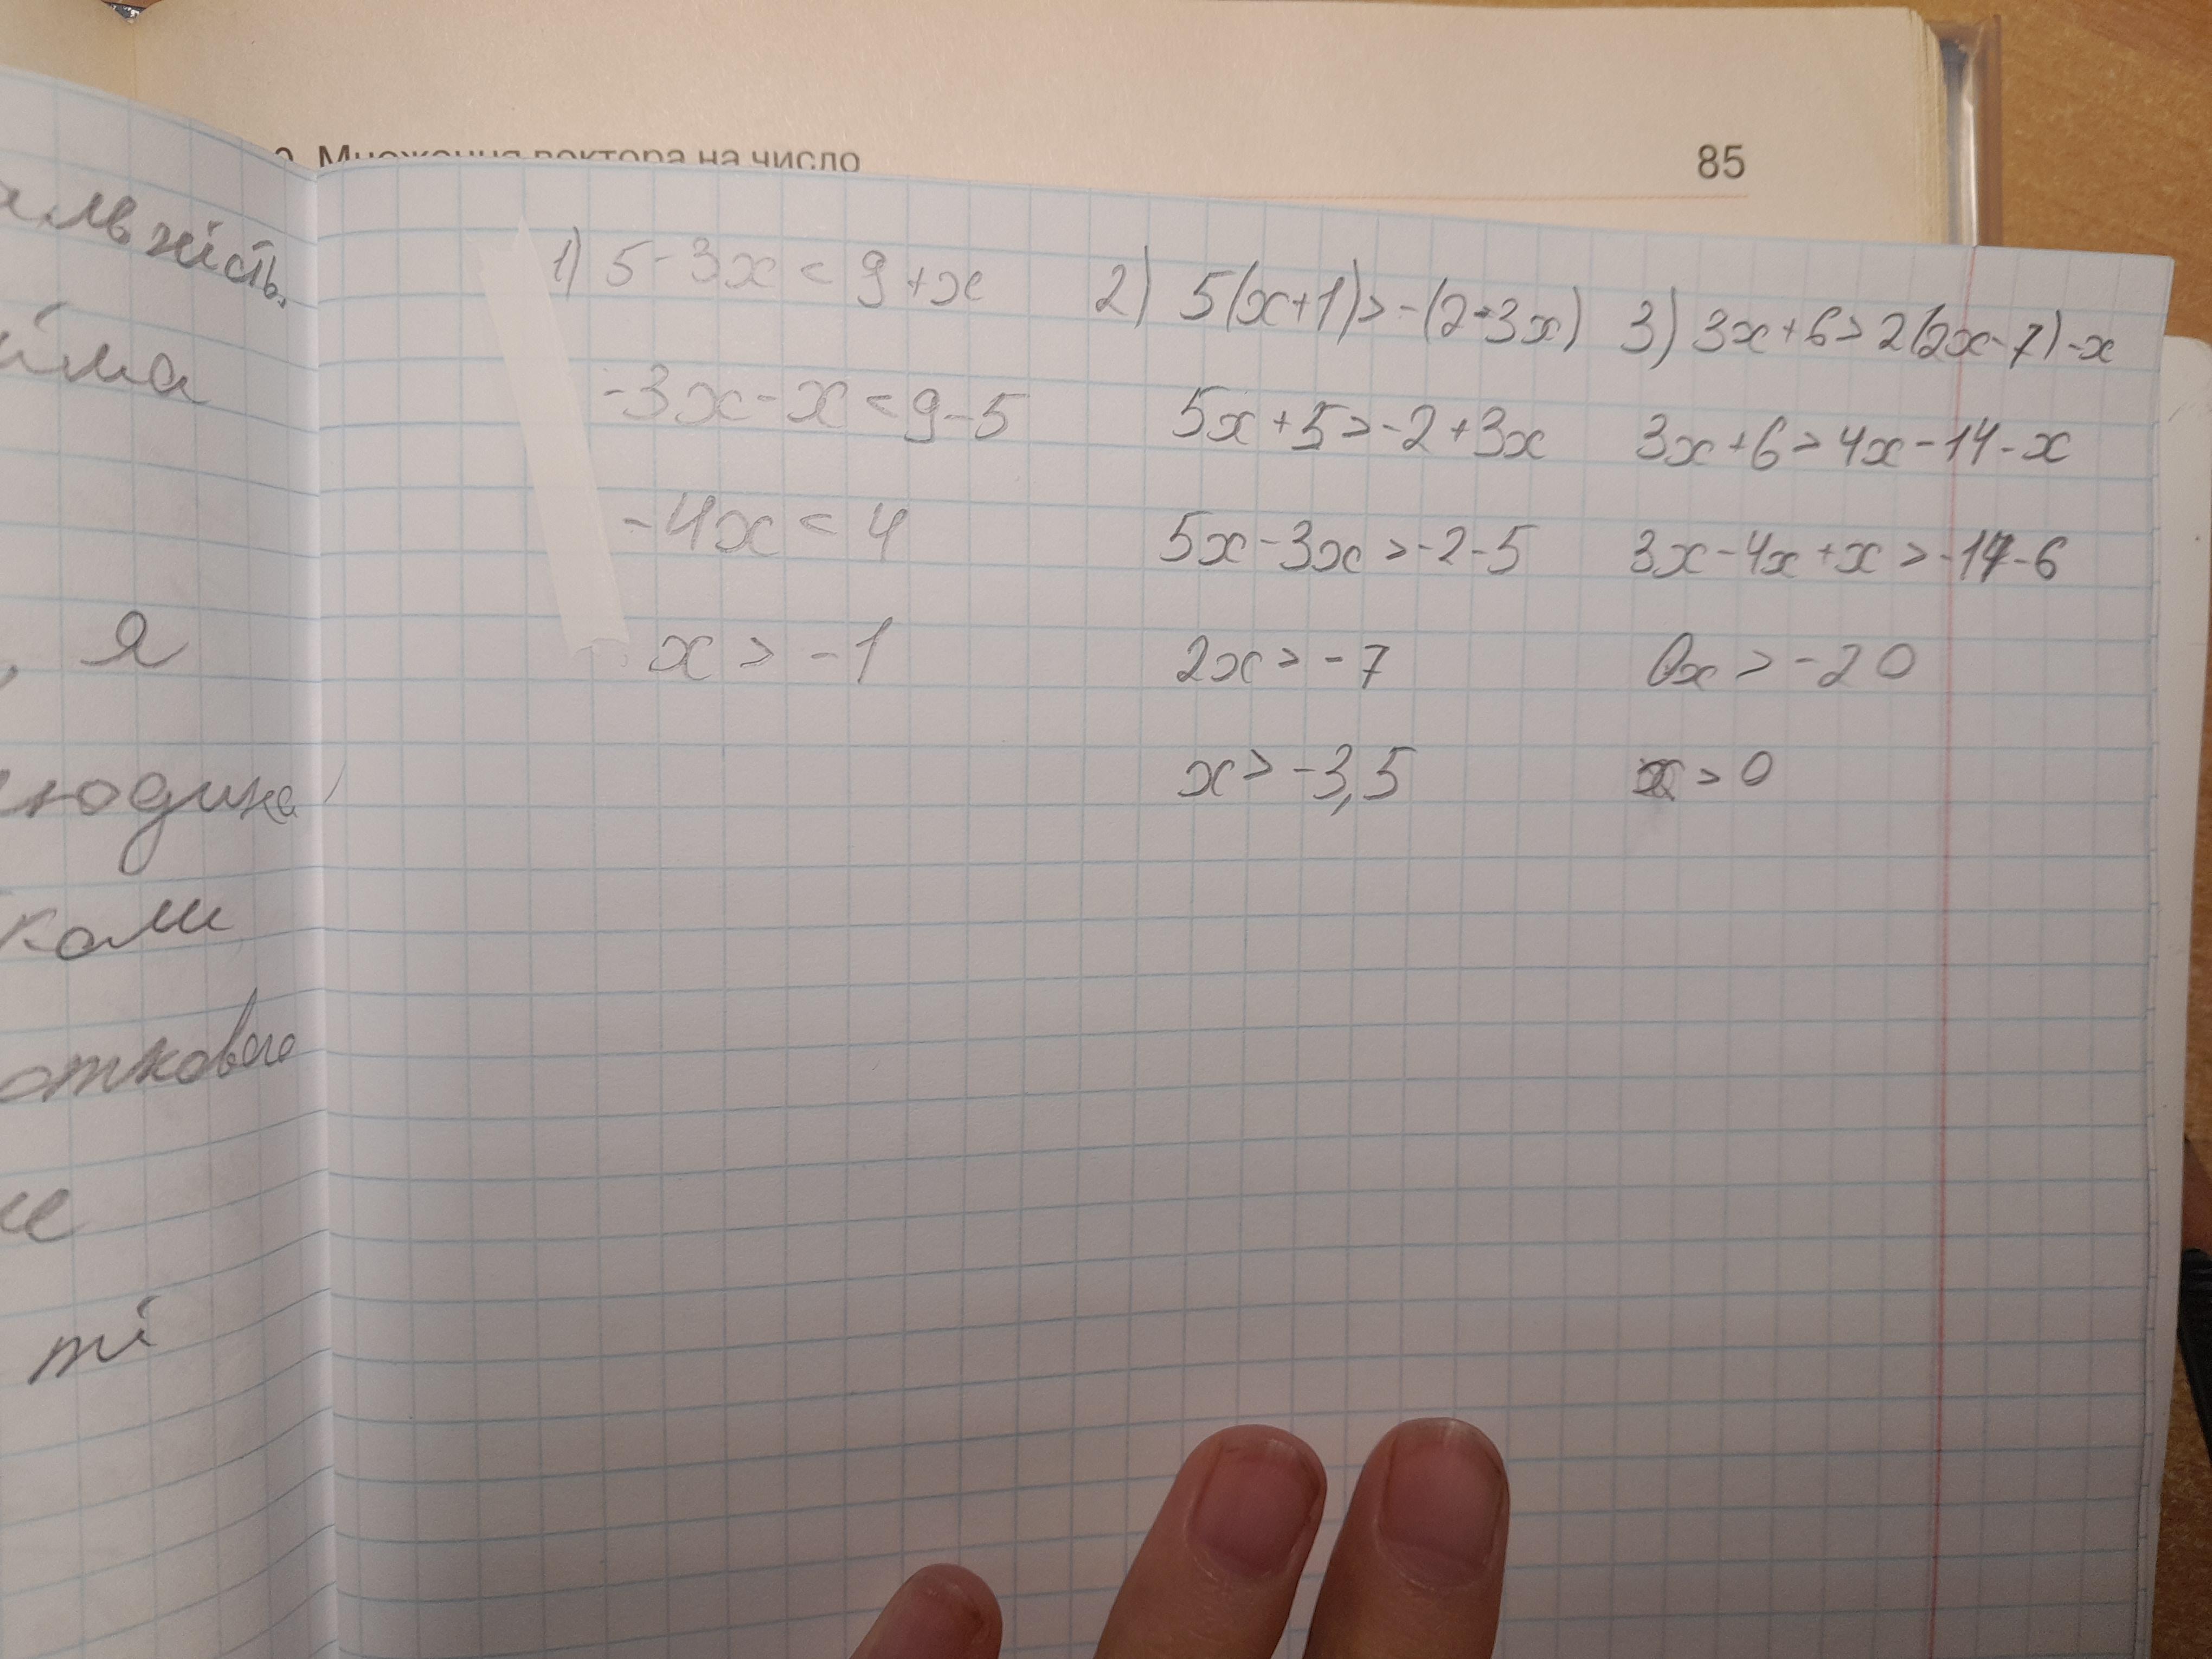 Множення вектора на число 85
1) 5-3x < 9+x
-3x-x < 9-5
-4x < 4
x > -1
2) 5(x+1) > -(2-3x)
5x+5 > -2+3x
5x-3x > -2-5
2x > -7
x > -3,5
3) 3x+6 > 2(2x-7)-x
3x+6 > 4x-14-x
3x-4x+x > -14-6
0x > -20
x > 0
, я
ті